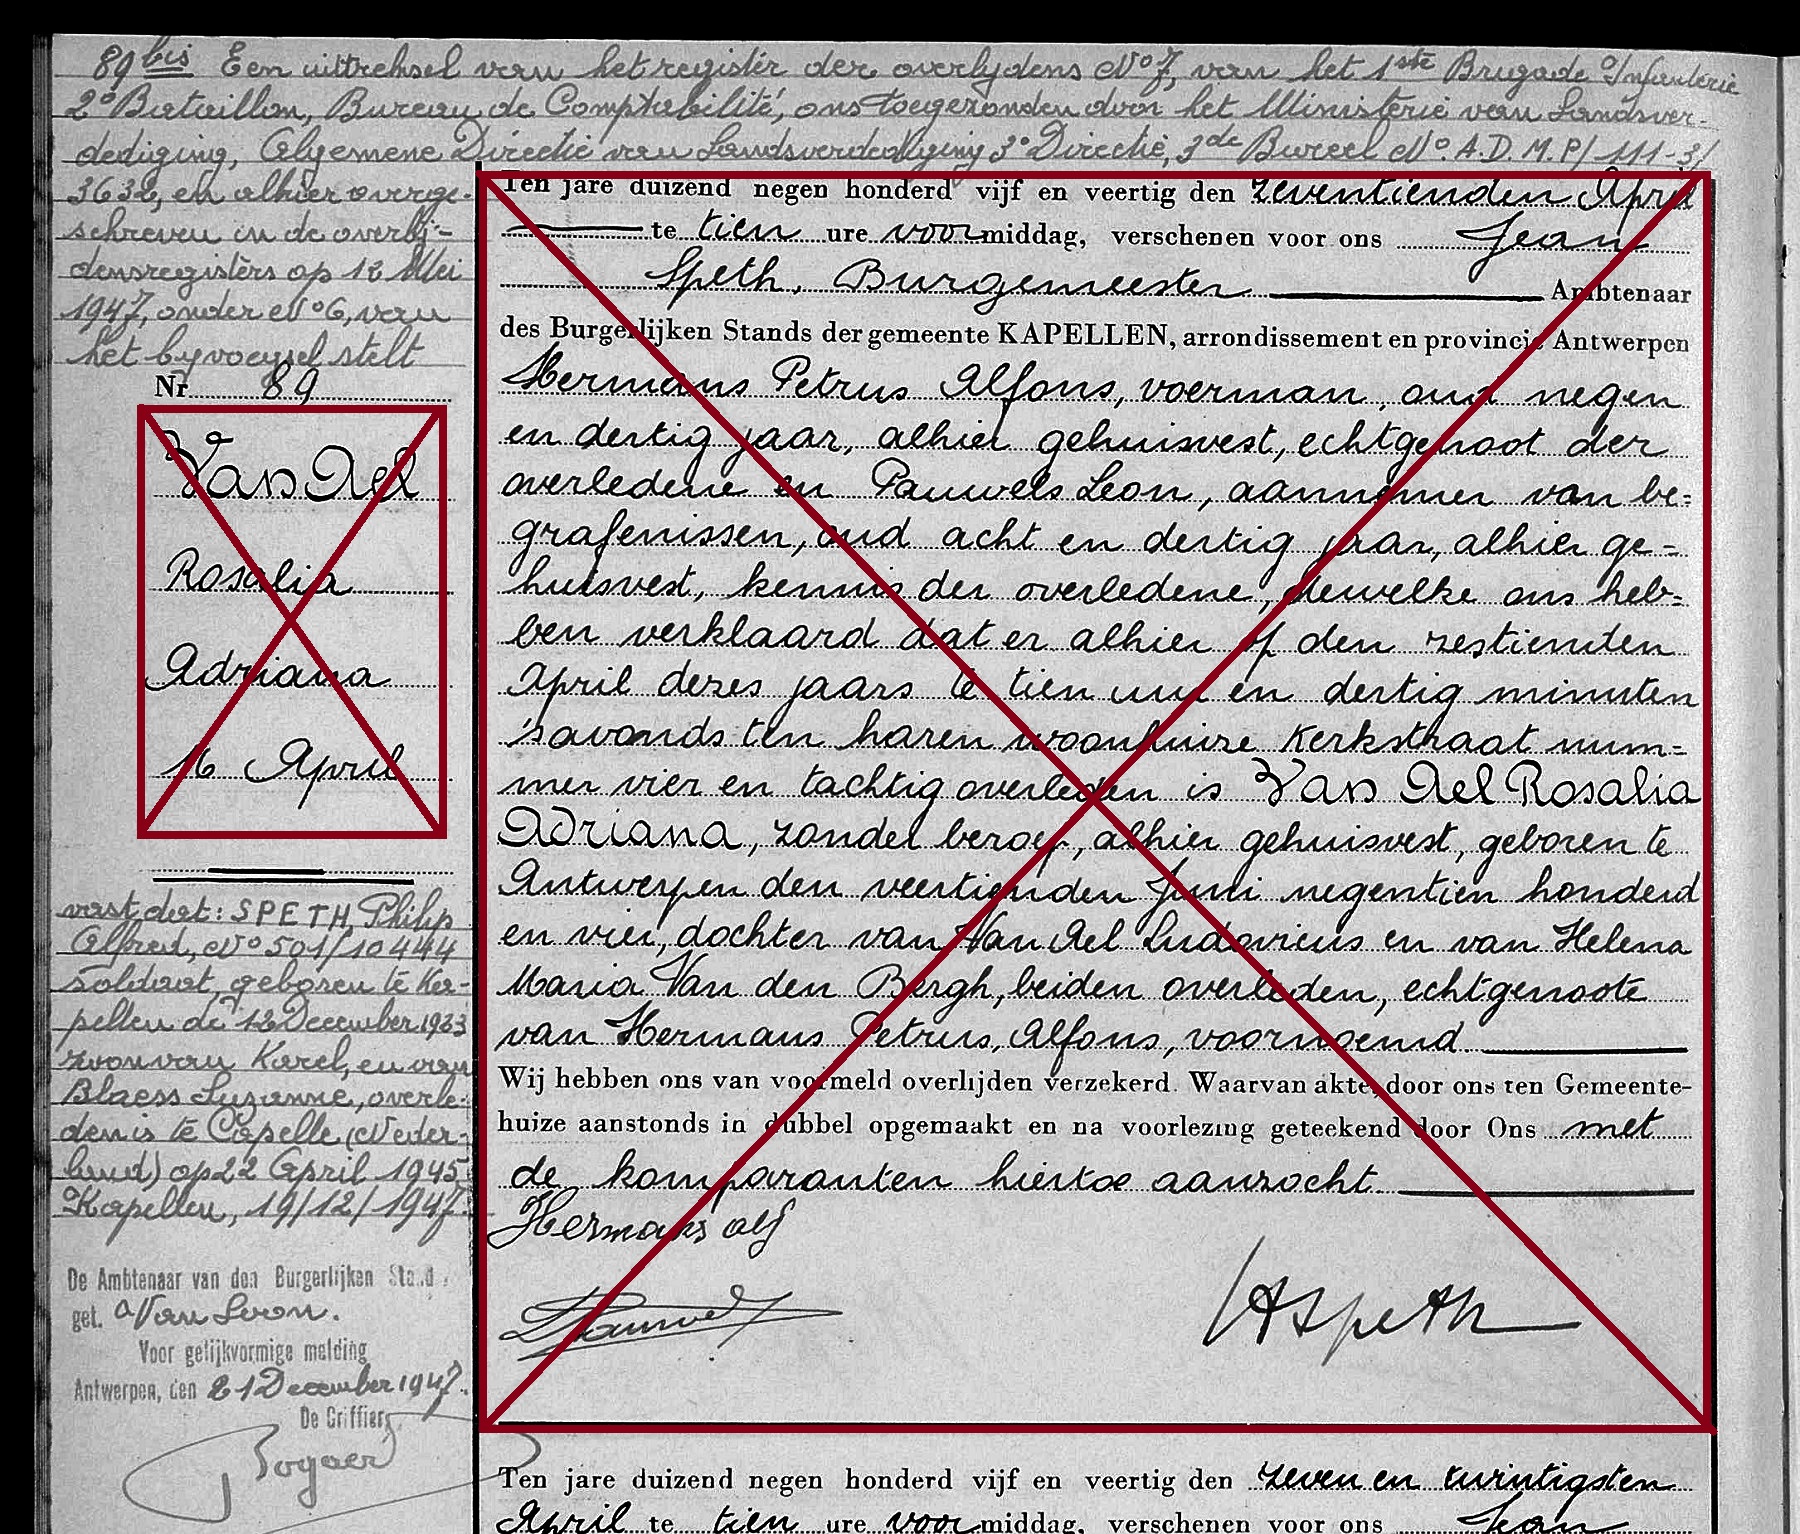 89 bis Een uittreksel van het register der overlijdens No 7, van het 1ste Brigade Infanterie
2o Bataillon, Bureau de Comptabilité, ons toegezonden door het Ministerie van Landsver-
dediging, Algemene Directie van Landsverdediging 3o Directie, 3de Bureel No. A.D.M.P/111-3/
3632, en alhier overge-
schreven in de overlij-
densregisters op 12 Mei
1947, onder No 6, van
het byvoegsel stelt
Nr 89
Van Ael
Rosalia
Adriana
16 April
vast dat: SPETH, Philip
Alfred, No 501/10444
soldaat, geboren te Ka-
pellen de 12 December 1923
zoon van Karel, en van
Blaess Suzanne, overle-
den is te Capelle (Neder-
land) op 22 April 1945
Kapellen, 19/12/1947.
De Ambtenaar van den Burgerlijken Stand,
get. Van Loon.
Voor gelijkvormige melding
Antwerpen, den 21 December 1947.
De Griffier,
Bogaer
Ten jare duizend negen honderd vijf en veertig den zeventienden April
te tien ure voormiddag, verschenen voor ons Jean
Speth, Burgemeester Ambtenaar
des Burgerlijken Stands der gemeente KAPELLEN, arrondissement en provincie Antwerpen
Hermans Petrus Alfons, voerman, oud negen
en dertig jaar, alhier gehuisvest, echtgenoot der
overledene en Pauwels Leon, aannemer van be=
grafenissen, oud acht en dertig jaar, alhier ge=
huisvest, kennis der overledene, dewelke ons heb=
ben verklaard dat er alhier op den zestienden
April dezes jaars te tien uur en dertig minuten
's avonds ten haren woonhuize Kerkstraat num=
mer vier en tachtig overleden is Van Ael Rosalia
Adriana, zonder beroep, alhier gehuisvest, geboren te
Antwerpen den veertienden Juni negentien honderd
en vier, dochter van Van Ael Ludovicus en van Helena
Maria Van den Bergh, beiden overleden, echtgenoote
van Hermans Petrus, Alfons, voornoemd.
Wij hebben ons van voormeld overlijden verzekerd. Waarvan akte, door ons ten Gemeente-
huize aanstonds in dubbel opgemaakt en na voorlezing geteekend door Ons met
de komparanten hiertoe aanzocht.
Hermans alf
Pauwels
Speth
Ten jare duizend negen honderd vijf en veertig den zeven en twintigsten
April te tien ure voormiddag, verschenen voor ons Jean